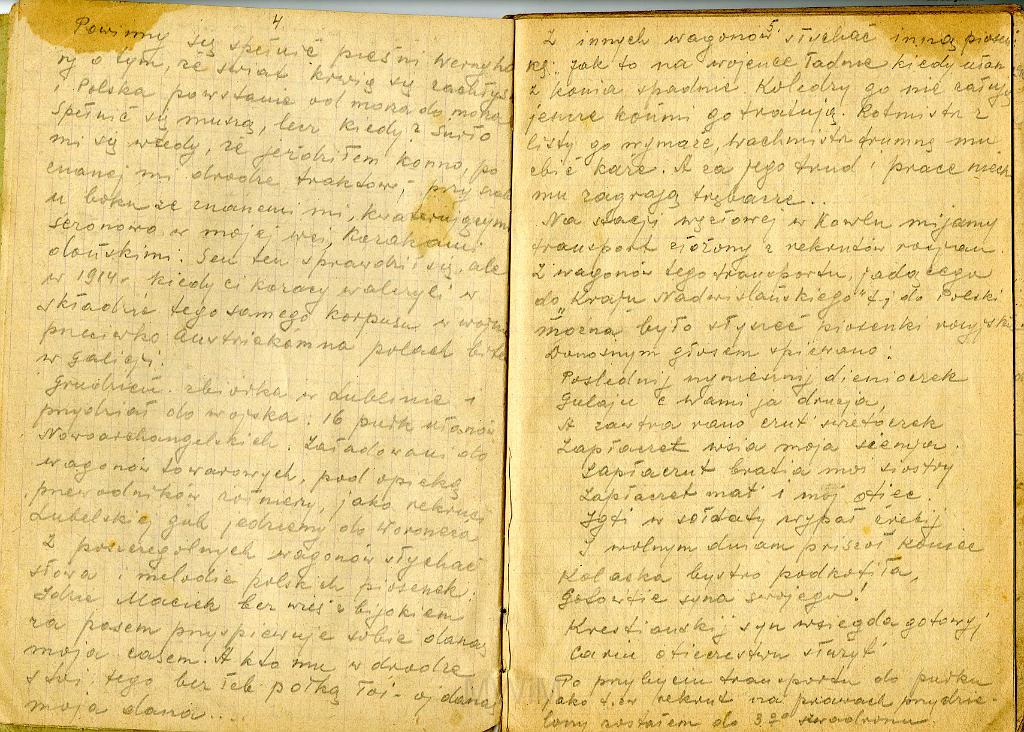 4.
Powinny się spełnić pieśni Wernyho
ry o tym, że świat krwią się zachłyś
i Polska powstanie od morza do morza
Spełnić się muszą, lecz kiedy?
mi się wtedy, że jeździłem konno, po
znanej mi drodze traktowej, przy
u boku ze znanemi mi, kwaterującym
sezonowo w mojej wsi, Kozakami
dońskimi. Sen ten sprawdził się, ale
w 1914 r. kiedy ci kozacy walczyli w
składzie tego samego korpusu w wojnie
przeciwko Austriakom na polach bitew
w Galicji.
Grudzień. zbiórka w Lublinie i
przydział do wojska: 16 pułk ułanów
Nowoarchangelskich. Załadowani do
wagonów towarowych, pod opieką
przewodników żołnierzy, jako rekruci
Lubelskiej gub jedziemy do Woroneża
Z poszczególnych wagonów słychać
słowa i melodie polskich piosenek:
Idzie Maciek bez wieś z bijokiem
za pasem przyspiewuje sobie dana
moja casem. A kto mu w drodze
stoi tego bez łeb pałką łoi - oj dana
moja dana...
5
Z innych wagonów słychać inną piosen
kę: Jak to na wojence ładnie kiedy ułan
z konia spadnie. Koledzy go nie żałują
jeszcze końmi go tratują. Rotmistrz z
listy go wymaże, wachmistrz trumnę mu
zbić każe. A za jego trud i pracę niech
mu zagrają trębacze..
Na stacji węzłowej w Kowlu mijamy
transport złożony z rekrutów rosjan
Z wagonów tego transportu, jadącego
do "Kraju Nadwiślańskiego" t.j do Polski
można było słyszeć piosenki rosyjskie
Donośnym głosem śpiewano:
Poslednij nyniesznij dienioczek
Gulaju z wami ja druzja,
A zawtra rano czut swietoczek
Zapłaczet wsia moja siemja.
Zapłaczut bratia moi siostry
Zapłaczet mat' i mój otiec.
Igti w sołdaty wypał żrebij
I wolnym dniam priszoł koniec
Kolaska bystro podkotiła,
Gotowtie syna swojego!
Krestianskij syn wsiegda gotowyj
Cariu otieczestwu służyt'
Po przybyciu transportu do pułku
jako t.zw rekrut na prawach przydzie
lony zostałem do 3-go szwadronu.